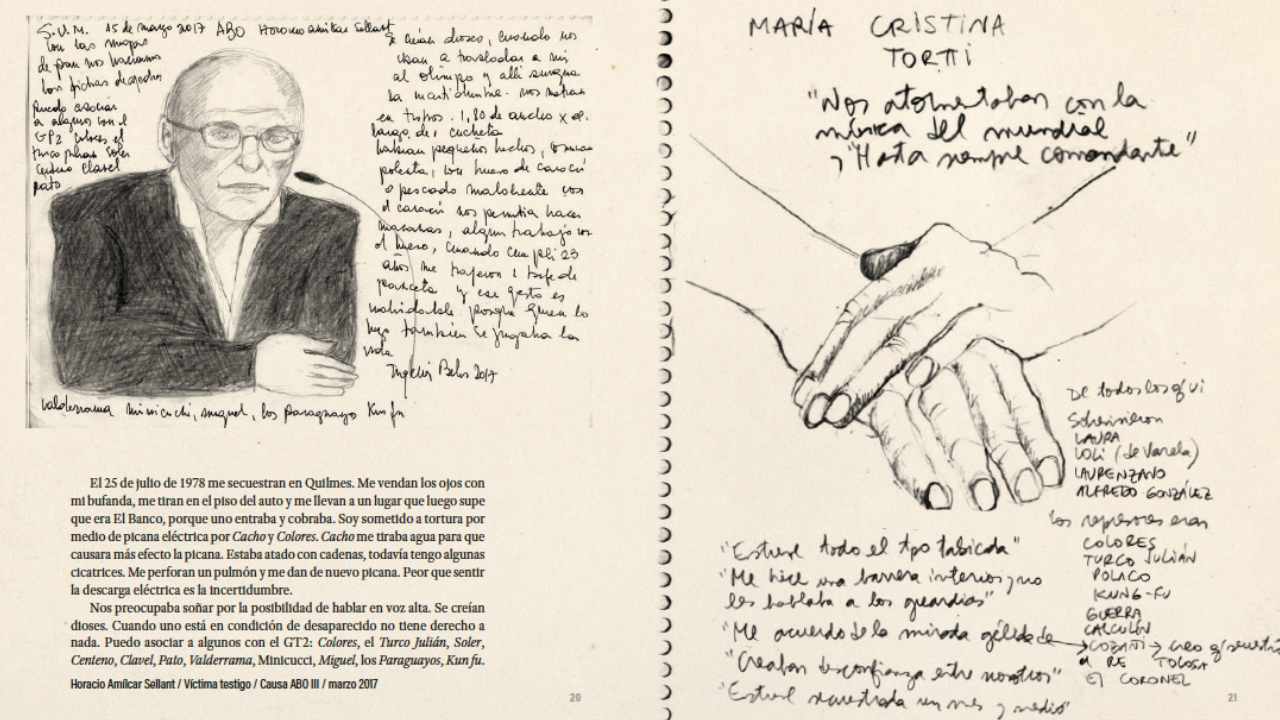 S.V.M. 15 de marzo 2017 ABO Horacio Amílcar Sellant
con las migas
de pan nos hacíamos
las fichas de ajedrez
Puedo asociar
a algunos con el
GP2 Colores el
turco Julian Soler
Centeno Clavel
pato
Se creían dioses, cuando nos
iban a trasladar a mi
al olimpo y alli surgia
la incertidumbre. nos metian
en tubos. 1,80 de ancho x
largo de 1 cucheta
habian pequeños hechos,
polenta, con hueso de caracú
o pescado maloliente con
el caracú nos permitia hacer
algun trabajo en
el hueso, cuando cumpli 23
años me trajeron 1 bife de
paleta y ese gesto es
inolvidable. porque quien lo
hizo también se jugaba la
vida
2017
valderrama minicuchi, miguel, los paraguayo Kun fu
El 25 de julio de 1978 me secuestran en Quilmes. Me vendan los ojos con
mi bufanda, me tiran en el piso del auto y me llevan a un lugar que luego supe
que era El Banco, porque uno entraba y cobraba. Soy sometido a tortura por
medio de picana eléctrica por Cacho y Colores. Cacho me tiraba agua para que
causara más efecto la picana. Estaba atado con cadenas, todavía tengo algunas
cicatrices. Me perforan un pulmón y me dan de nuevo picana. Peor que sentir
la descarga eléctrica es la incertidumbre.
Nos preocupaba soñar por la posibilidad de hablar en voz alta. Se creían
dioses. Cuando uno está en condición de desaparecido no tiene derecho a
nada. Puedo asociar a algunos con el GT2: Colores, el Turco Julián, Soler,
Centeno, Clavel, Pato, Valderrama, Minicucci, Miguel, los Paraguayos, Kun fu.
Horacio Amílcar Sellant / Víctima testigo / Causa ABO III / marzo 2017
20
MARÍA CRISTINA
TORTTI
"Nos atormentaban con la
música del mundial
y "Hasta siempre comandante"
De todos los q' vi
Sobrevivieron
LAURA
LOLI (de Varela)
LAURENZANO
ALFREDO GONZÁLEZ
los represores eran
COLORES
TURCO JULIÁN
POLACO
KUNG-FU
GUERRA
CALCULÍN
COZANI → creo q'
RE TOLOSA
El CORONEL
"Estuve todo el tpo tabicada"
"Me hice una barrera interior; no
les hablaba a los guardias"
"Me acuerdo de la mirada gélida de
"Creaban desconfianza entre nosotros"
"Estuve secuestrada un mes y medio"
21